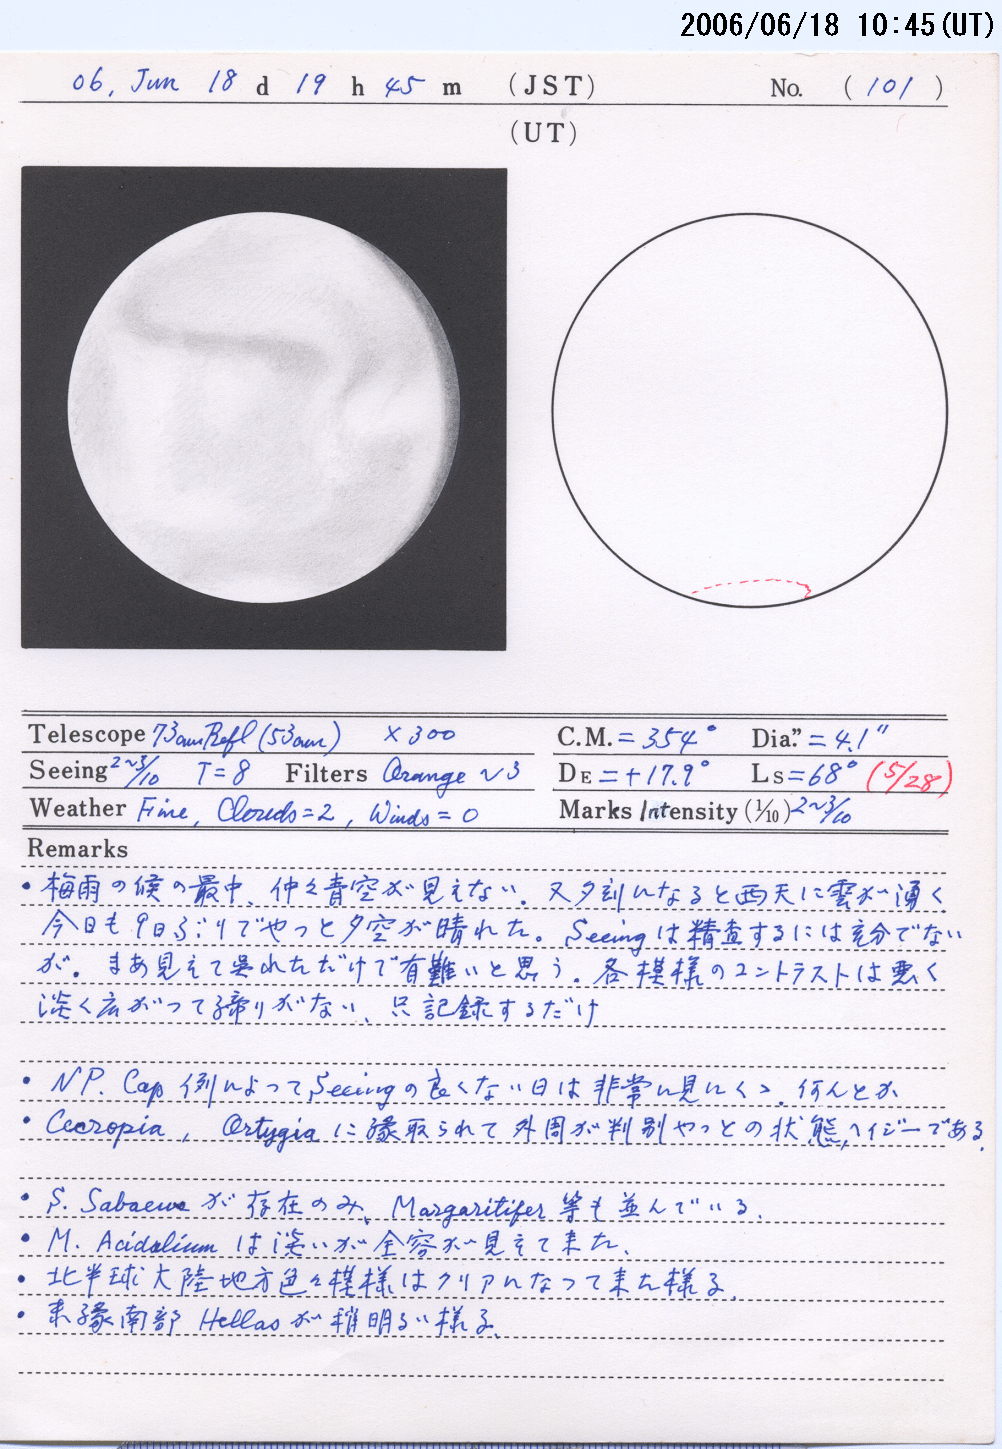 2006/06/18 10:45(UT)
06, Jun 18 d 19 h 45 m (JST) No. (101)
(UT)
Telescope 73cm Refl (53cm) ×300
C.M. = 354° Dia." = 4.1"
Seeing 2~3/10 T=8 Filters Orange ~3
DE = +17.9° LS = 68° (5/28)
Weather Fine, Clouds=2, Winds=0
Marks Intensity (1/10) 2~3/10
Remarks
・梅雨の候の最中、仲々青空が見えない。又夕刻になると西天に雲が湧く
今日も9日ぶりでやっと夕空が晴れた。Seeingは精査するには充分でない
が。まあ見えて呉れただけで有難いと思う。各模様のコントラストは悪く
淡く広がって締りがない、只記録するだけ
・N.P. Cap 例によってSeeingの良くない日は非常に見にくゝ。何んとか
・Cecropia, Ortygiaに縁取られて外周が判別やっとの状態、ヘイジーである。
・S. Sabaeusが存在のみ、Margaritifer等も並んでいる。
・M. Acidaliumは淡いが全容が見えて来た。
・北半球大陸地方色々模様はクリアになって来た様る。
・東縁南部Hellasが稍明るい様る。